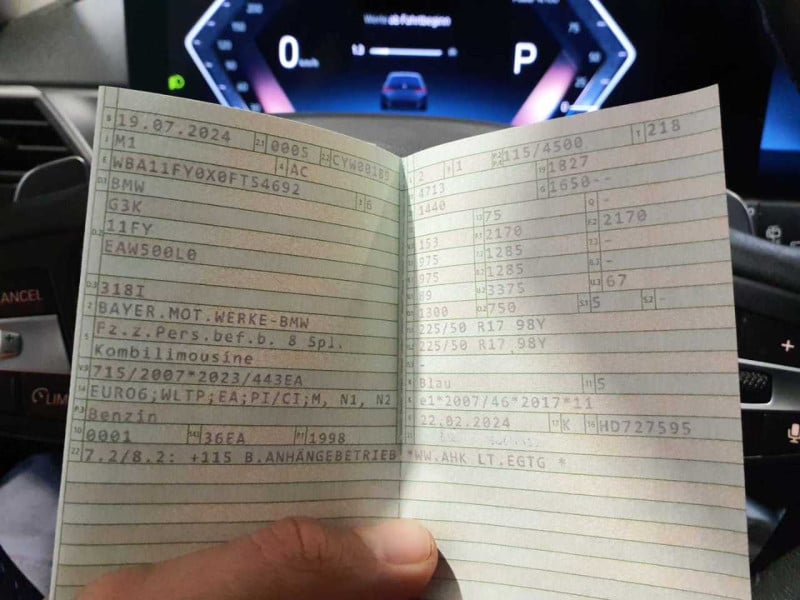 Werte ab Fahrtbeginn
0 km/h
P
CANCEL
LIM
B 19.07.2024 2.1 0005 2.2 CYW00185
J M1 4 AC
E WBA11FY0X0FT54692 3 6
D.1 BMW
D.2 G3K
11FY
EAW500L0
D.3 318I
2 BAYER.MOT.WERKE-BMW
5 Fz.z.Pers.bef.b. 8 Spl.
Kombilimousine
V.9 715/2007*2023/443EA
14 EURO6;WLTP;EA;PI/CI;M, N1, N2
P.3 Benzin
10 0001 14.1 36EA P.1 1998
22 7.2/8.2: +115 B.ANHÄNGEBETRIEB *WW.AHK LT.EGTG *
L 2 9 1 P.2 P.4 115/4500 T 218
4713 19 1827
1440 G 1650--
13 75 Q -
153 F.1 2170 F.2 2170
975 7.1 1285 7.3 -
975 8.1 1285 8.3 -
89 U.2 3375 U.3 67
1300 O.2 750 S.1 5 S.2 -
225/50 R17 98Y
225/50 R17 98Y
-
Blau 11 5
K e1*2007/46*2017*11
6 22.02.2024 17 K 16 HD727595